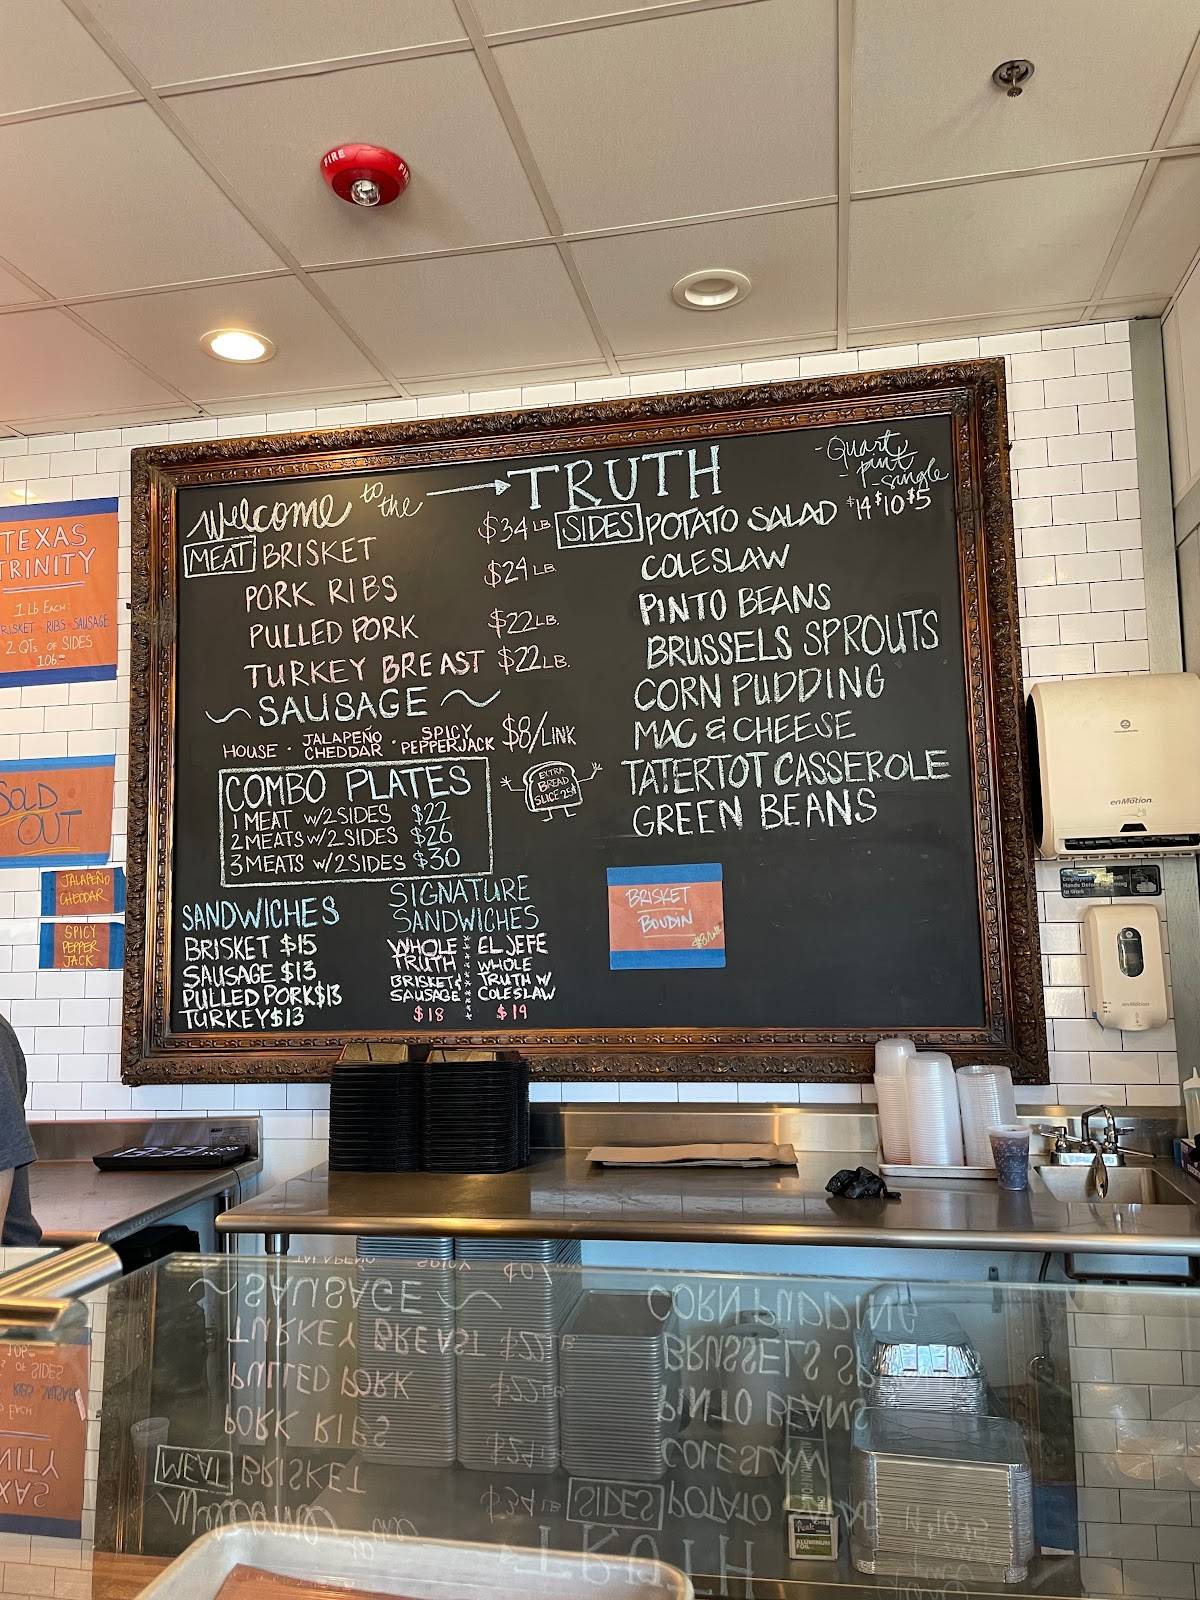 FIRE
Welcome to the → TRUTH
MEAT BRISKET $34 LB
PORK RIBS $24 LB
PULLED PORK $22 LB.
TURKEY BREAST $22 LB.
~ SAUSAGE ~
HOUSE · JALAPEÑO CHEDDAR · SPICY PEPPERJACK $8/LINK
EXTRA
BREAD
SLICE 25¢
COMBO PLATES
1 MEAT W/2 SIDES $22
2 MEATS W/2 SIDES $26
3 MEATS W/2 SIDES $30
SANDWICHES
BRISKET $15
SAUSAGE $13
PULLED PORK $13
TURKEY $13
SIGNATURE
SANDWICHES
WHOLE
TRUTH
BRISKET &
SAUSAGE
$18
EL JEFE
WHOLE
TRUTH W/
COLESLAW
$19
- Quart
- pint
- single
SIDES POTATO SALAD $14 $10 $5
COLESLAW
PINTO BEANS
BRUSSELS SPROUTS
CORN PUDDING
MAC & CHEESE
TATERTOT CASSEROLE
GREEN BEANS
BRISKET
BOUDIN
TEXAS
TRINITY
1 Lb EACH:
BRISKET RIBS SAUSAGE
2 QTs OF SIDES
106.00
SOLD
OUT
JALAPEÑO
CHEDDAR
SPICY
PEPPER
JACK
enMotion
Employees
Hands Before Returning
to Work
enMotion
ALUMINUM
FOIL